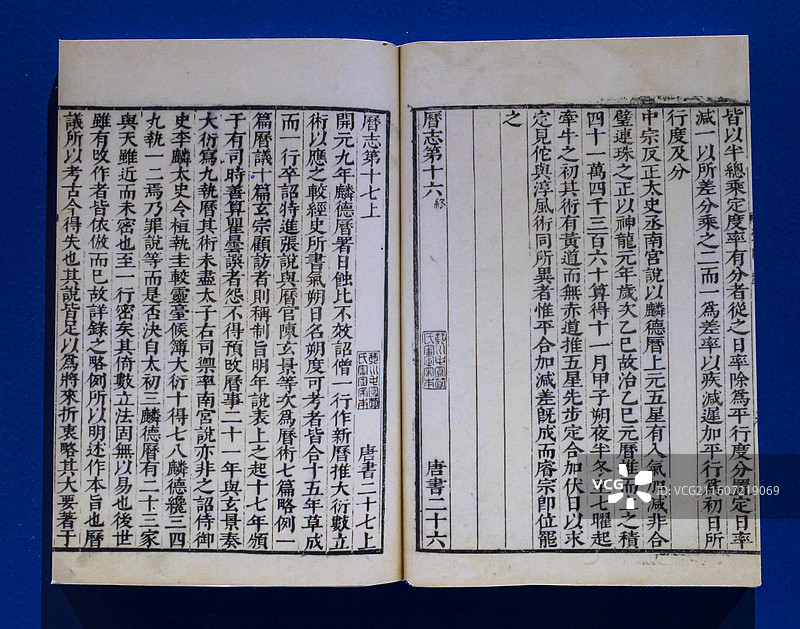 皆以半總乘定度率有分者從之日率除爲平行度分置定日率
減一以所差分乘之二而一爲差率以疾減遲加平行爲初日所
行度及分
中宗反正太史丞南宮說以麟德曆上元五星有入氣加減非合
璧連珠之正以神龍元年歲次乙巳故治乙巳元曆推而上之積
四十一萬四千三百六十算得十一月甲子朔夜半冬至七曜起
牽牛之初其術有黃道而無赤道推五星先步定合加伏日以求
定見佗與淳風術同所異者惟平合加減差旣成而睿宗即位罷
之
曆志第十六 終
唐書二十六
曆志第十七上
唐書二十七上
開元九年麟德曆署日蝕比不效詔僧一行作新曆推大衍數立
術以應之較經史所書氣朔日名朔度可考者皆合十五年草成
而一行卒詔特進張說與曆官陳玄景等次爲曆術七篇略例一
篇曆議十篇玄宗顧訪者則稱制旨明年說表上之起十七年頒
于有司時善算瞿曇譔者怨不得預改曆事二十一年與玄景奏
大衍寫九執曆其術未盡太子右司禦率南宮說亦非之詔侍御
史李麟太史令桓執圭較靈臺候簿大衍十得七八麟德纔三四
九執一二焉乃罪說等而是否決自太初至麟德曆有二十三家
與天雖近而未密也至一行密矣其倚數立法固無以易也後世
雖有改作者皆依倣而已故詳錄之略例所以明述作本旨也曆
議所以考古今得失也其說皆足以爲將來折衷略其大要著于
VCG
视觉中国
ID:VCG211607219069